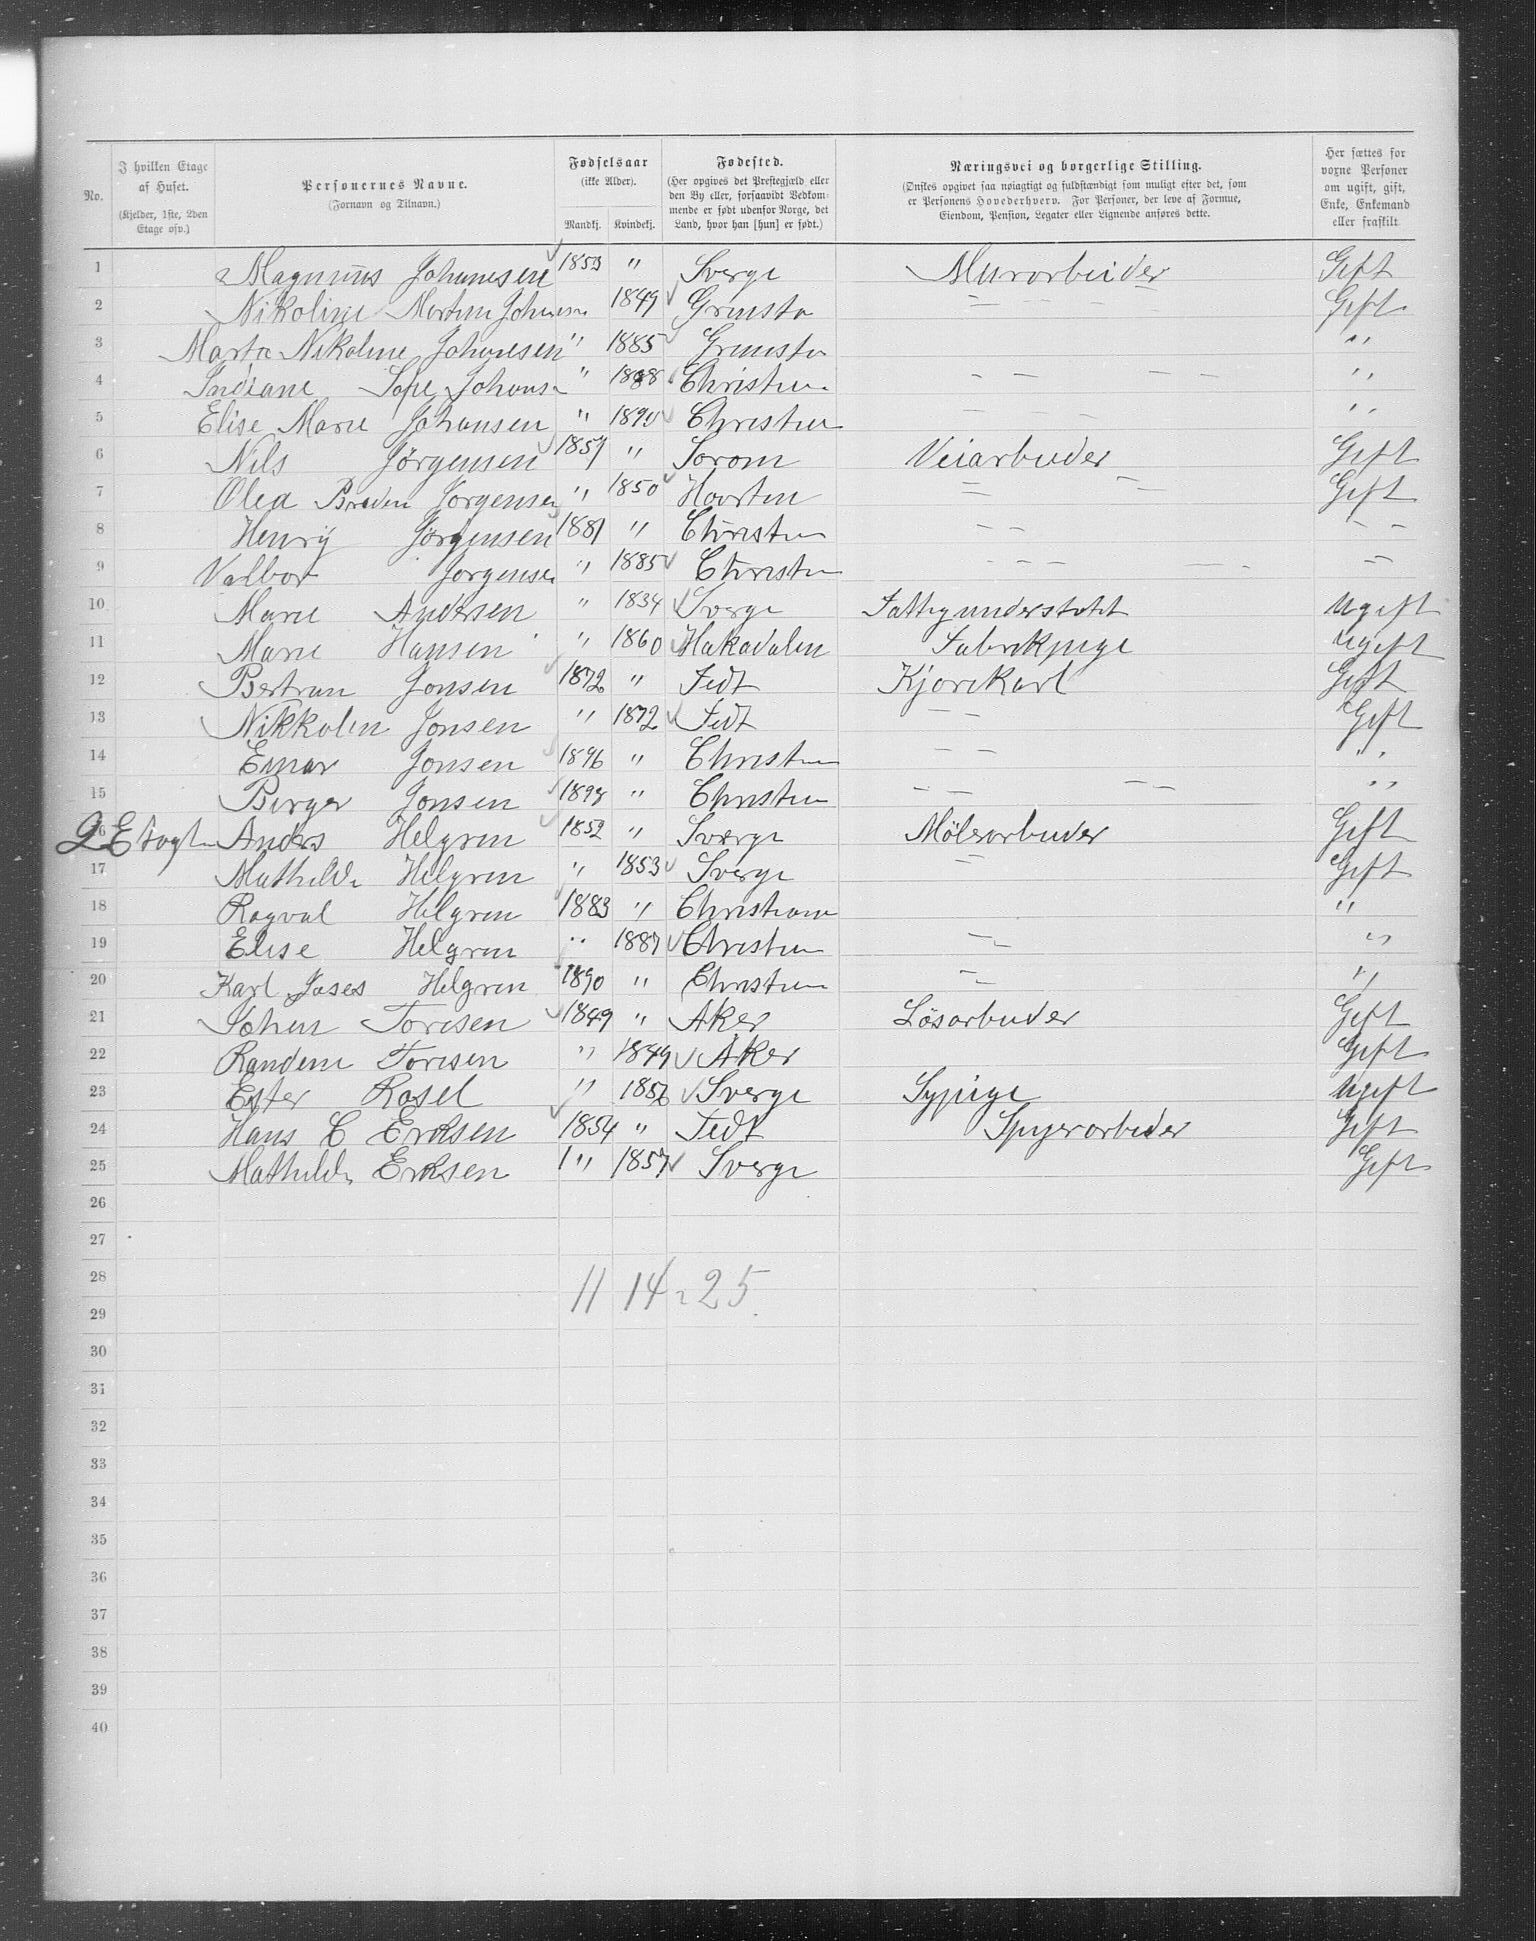 No. | I hvilken Etage af Huset. (Kjelder, 1ste, 2den Etage osv.) | Personernes Navne. (Fornavn og Tilnavn.) | Fødselsaar (ikke Alder). Mandkj. | Kvindekj. | Fødested. (Her opgives det Prestegjæld eller den By eller, forsaavidt Vedkommende er født udenfor Norge, det Land, hvor han [hun] er født.) | Næringsvei og borgerlige Stilling. (Ønskes opgivet saa nøiagtigt og fuldstændigt som muligt efter det, som er Personens Hovederhverv. For Personer, der leve af Formue, Eiendom, Pension, Legater eller Lignende anføres dette. | Her sættes for voxne Personer om ugift, gift, Enke, Enkemand eller fraskilt.
1 Magnus Johannesen 1853 " Sverge Murarbeider Gift
2 Nikoline Martine 1849 Grimsta — — Gift
3 Marta Nikoline Johannesen " 1885 Grimsta "
4 " 1888 — — — — "
5 Elise Marie Johansen " 1890 Christien — — — "
6 Nils Jörgensen 1857 " Sorom Veiarbeider Gift
7 Olea Jorgensen " 1850 Hoorten — — Gift
8 Henrij Jörgensen 1881 " Christin — — — —
9 Valbor Jorgensen " 1885 Christin — — — —
10 Marie Andersen " 1834 Sverge Fattigunderstøtet Ugift
11 Marie Hansen " 1860 Hakadalen Fabrikpige Ugift
12 Bertran Jonsen 1872 " Fedt Kjorekarl Gift
13 Nikkolin Jonsen " 1872 Fedt — — Gift
14 Einar Jonsen 1896 " Christin — — "
15 Birger Jonsen 1898 " Christin — — — "
16 2 Etagt Anders Helgren 1852 " Sverge Mölerarbeider Gift
17 Mathilde Helgren " 1853 Sverge — Gift
18 Ragval Helgren 1883 " Christiana "
19 Elise Helgren " 1887 Christin — — "
20 Karl Helgren 1890 " Christin — "
21 Johan Toresen 1849 " Aker Lösarbeider Gift
22 Randine Toresen " 1849 Aker Gift
23 Ester Rosel " Sverge Sypige Ugift
24 Hans C Eriksen 1854 " Fedt Gift
25 Mathilde Eriksen " 1857 Sverge Gift
26
27
28 11 14 = 25
29
30
31
32
33
34
35
36
37
38
39
40